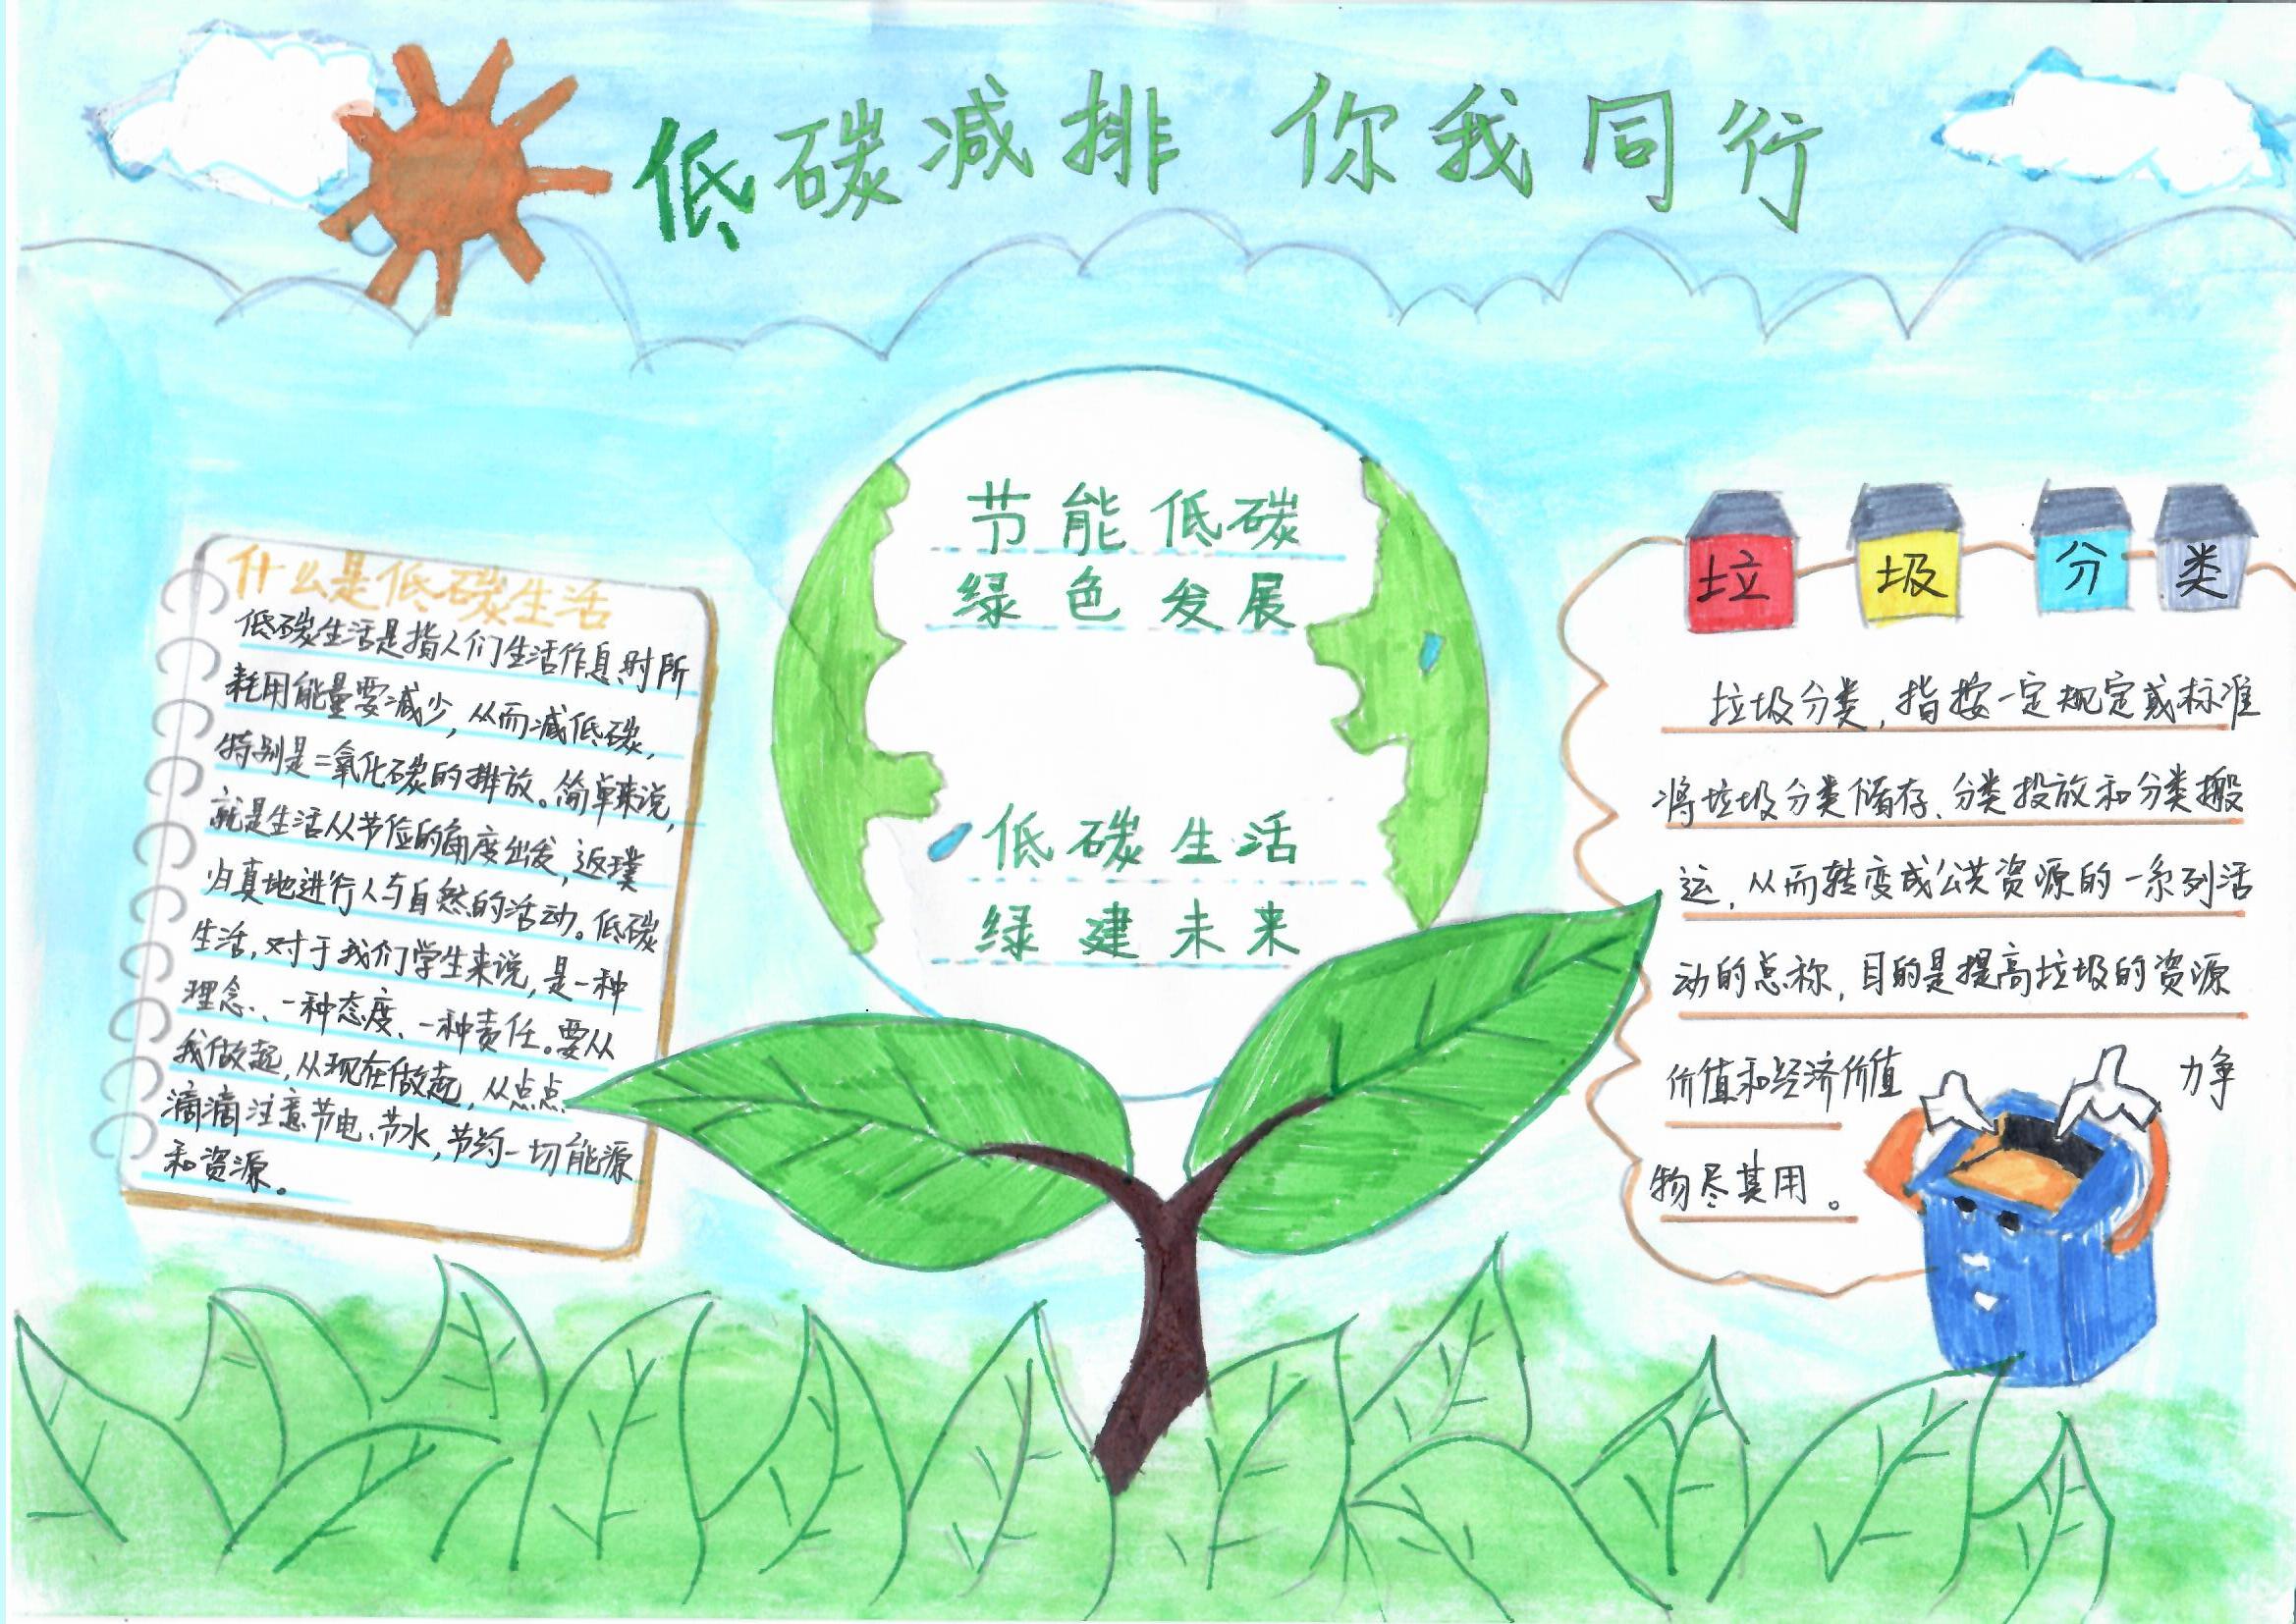 低碳减排 你我同行
什么是低碳生活
低碳生活是指人们生活作息时所
耗用能量要减少，从而减低碳，
特别是二氧化碳的排放。简单来说，
就是生活从节俭的角度出发，返璞
归真地进行人与自然的活动。低碳
生活，对于我们学生来说，是一种
理念、一种态度、一种责任。要从
我做起，从现在做起，从点点
滴滴注意节电、节水，节约一切能源
和资源。
节能低碳
绿色发展
低碳生活
绿建未来
垃圾分类
垃圾分类，指按一定规定或标准
将垃圾分类储存、分类投放和分类搬
运，从而转变成公共资源的一系列活
动的总称，目的是提高垃圾的资源
价值和经济价值 力争
物尽其用。